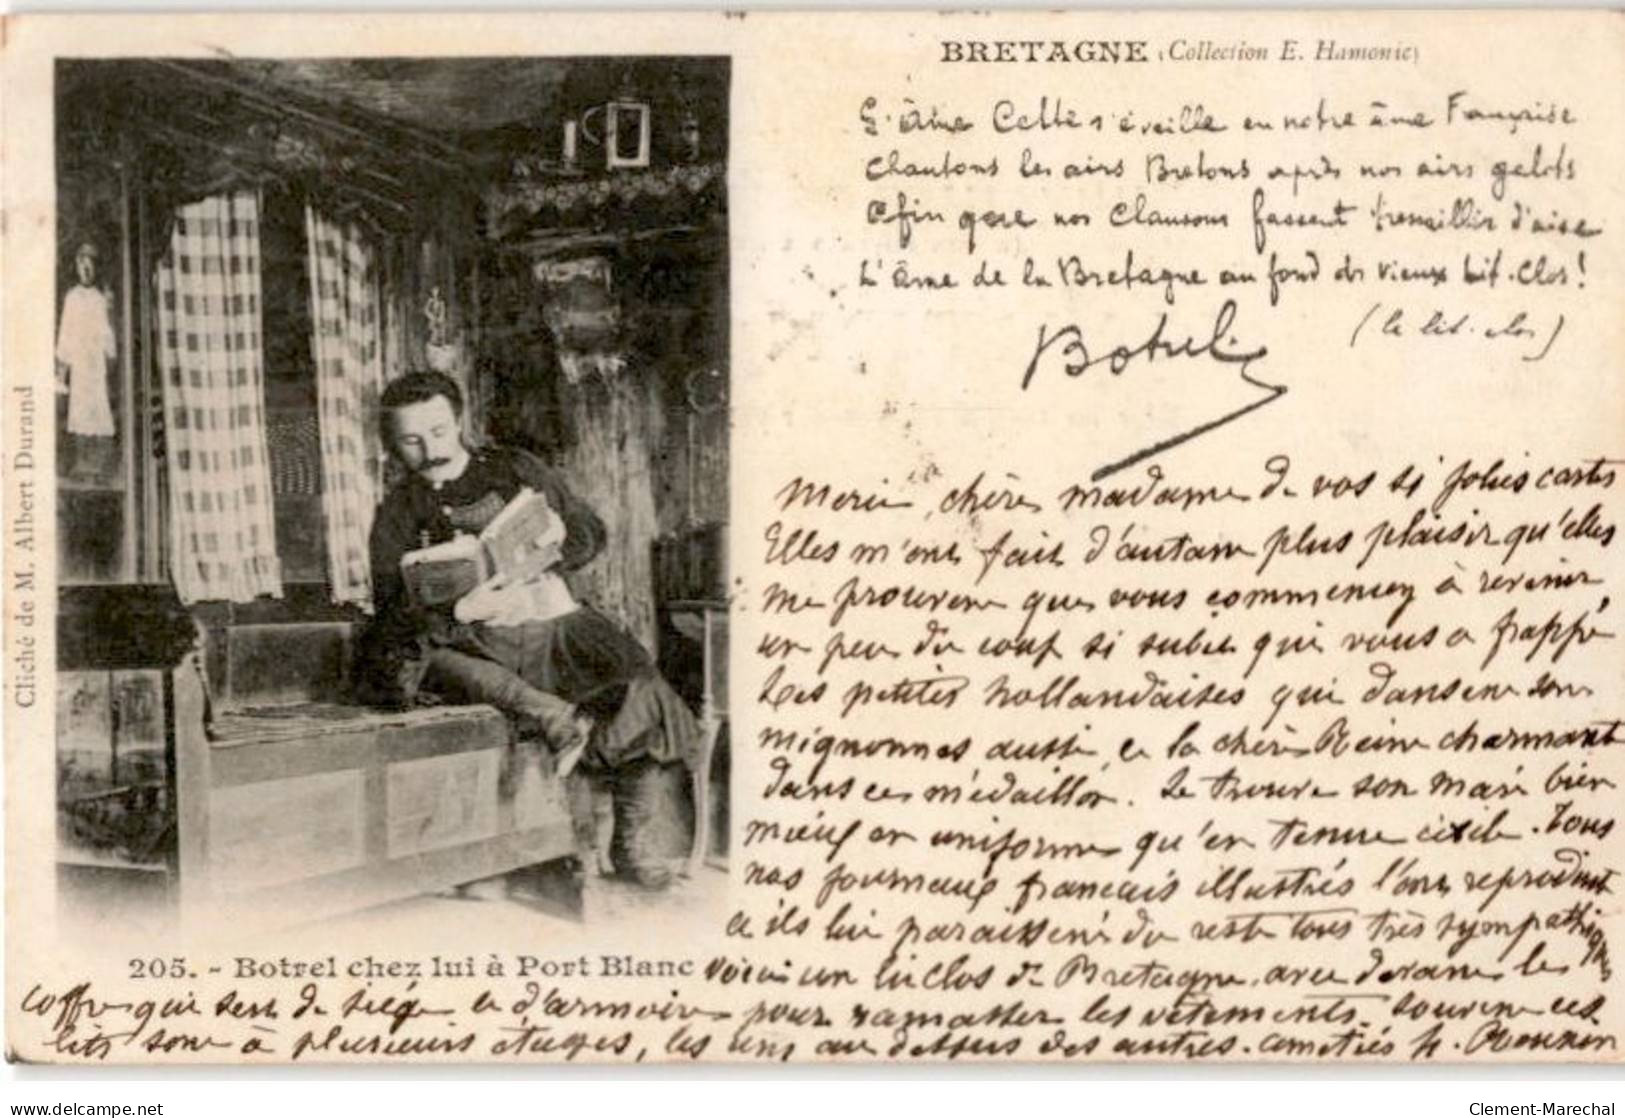 BRETAGNE (Collection E. Hamonic)
L'âme Celte s'éveille en notre âme Française
Chantons les airs Bretons après nos airs
Afin que nos Chansons fassent tressaillir d'aise
L'âme de la Bretagne au fond des vieux Lit-Clos!
(le lit-clos)
Botrel
Cliché de M. Albert Durand
205. - Botrel chez lui à Port Blanc
Merci, chère madame de vos si jolies cartes
Elles m'ont fait d'autant plus plaisir qu'elles
me prouvent que vous commencez à revenir
un peu du coup si subit qui vous a frappé
Les petites hollandaises qui dansent sont
mignonnes aussi, et la chère Reine charmante
dans ce médaillon. Je trouve son mari bien
mieux en uniforme qu'en tenue civile. Tous
nos journaux français illustrés l'ont reproduit
et ils lui paraissent du reste tous très sympathiques
voici un lit clos de Bretagne, avec devant le
coffre qui sert de siège et d'armoire pour ramasser les vêtements. souvent ces
lits sont à plusieurs étages, les uns au dessus des autres. amitiés
Clement-Marechal
delcampe.net